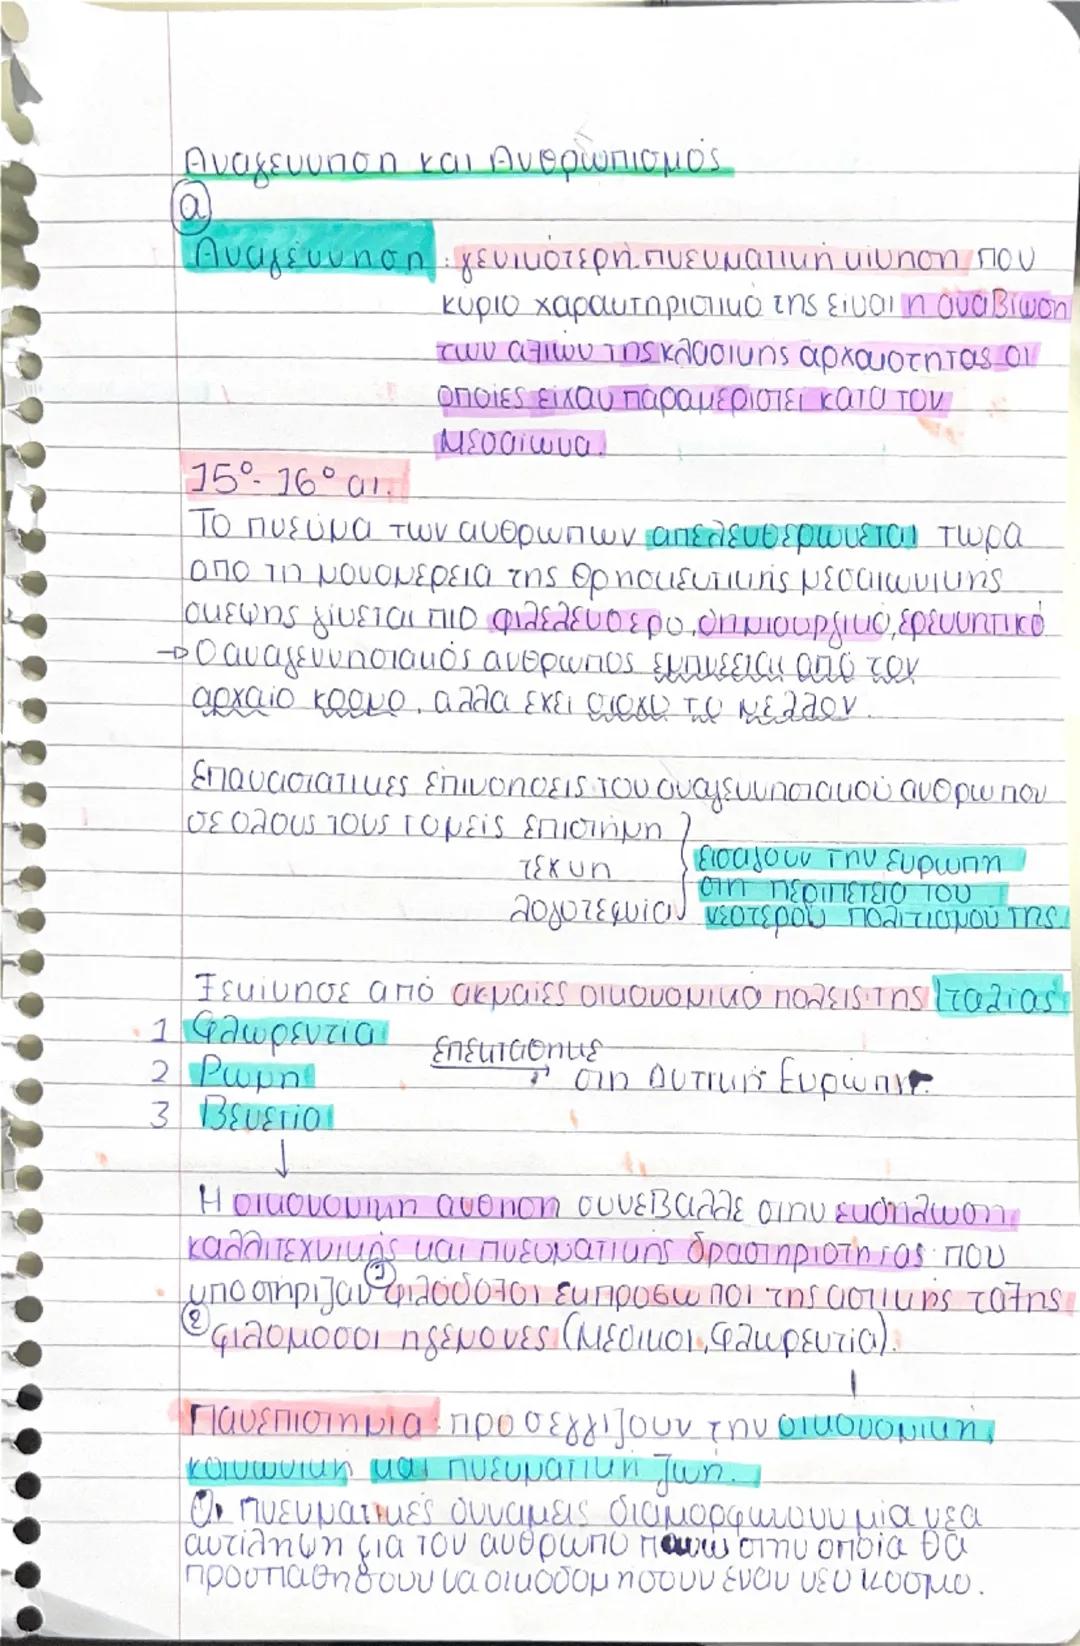 Αναγεννηση και Ανθρωπισμός
α
Αναγέννηση : γενικότερη πνευματική κίνηση που
κύριο χαρακτηριστικό της είναι η αναβίωση
των αξιών της κλασικής αρχαιοτητας οι
οποίες είχαν παραμεριστεί κατα τον
Μεσαίωνα.
15ο- 16ο αι.
Το πνεύμα των ανθρωπων απελευθερώνεται τωρα
απο τη μονομέρεια της θρησκευτικής μεσαιωνικης
σκεψης γίνεται πιο φιλελευθερο, δημιουργικό, ερευνητικό
→ Ο αναγεννησιακός ανθρωπος εμπνέεται από τον
αρχαίο κοσμο, αλλα εχει στοχο το μελλον.
Επαναστατικες επινοησεις του αναγεννησιακού ανθρωπου
σε ολους τους τομείς επιστήμη
τέχνη
λογοτεχνία
εισαγουν την Ευρωπη
στη περιπετεια του
νεοτερου πολιτισμού της.
Ξεκίνησε από ακμαίες οικονομικα πολεις της Ιταλίας
1 Φλωρεντία
2 Ρωμη
3 Βενετια
επεκτάθηκε → στη Δυτική Ευρώπη.
↓
Η οικονομικη ανθηση συνεβαλλε στην εκδήλωση
καλλιτεχνικής και πνευματικης δραστηριοτητας που
υποστηριζαν ① φιλόδοξοι εκπροσωποι της αστικης ταξης
② φιλομοσοι ηγεμονες (Μεδικοι, Φλωρεντία).
Πανεπιστημια : προσεγγιζουν την οικονομικη,
κοινωνικη και πνευματικη ζωη.
Οι πνευματικές δυναμεις διαμορφωνουν μία νεα
αντίληψη για τον ανθρωπο πανω στην οποία θα
προσπαθησουν να οικοδομησουν εναν νεο κοσμο.